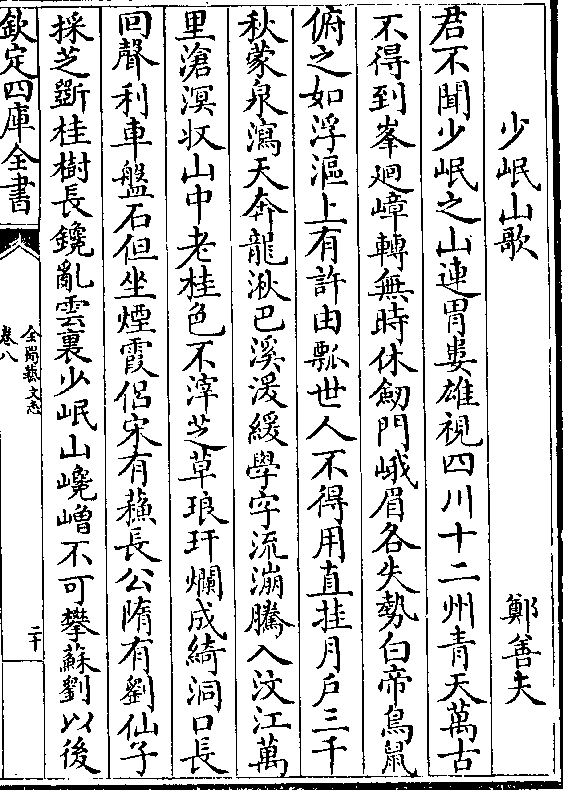 少岷山歌
鄭善夫
君不聞少岷之山連胃婁雄視四川十二州青天萬古
不得到峯廻嶂轉無時休劒門峨眉各失勢白帝鳥鼠
俯之如浮漚上有許由瓢世人不得用直挂月戶三千
秋蒙泉瀉天奔龍湫巴溪湲緩學字流漰騰入汶江萬
里滄溟收山中老桂色不滓芝草琅玕爛成綺洞口長
回聲利車盤石但坐煙霞侣宋有蘓長公隋有劉仙子
採芝斵桂樹長鑱亂雲裏少岷山巉嶒不可攀蘇劉以後
欽定四庫全書
全蜀藝文志
卷八
二十